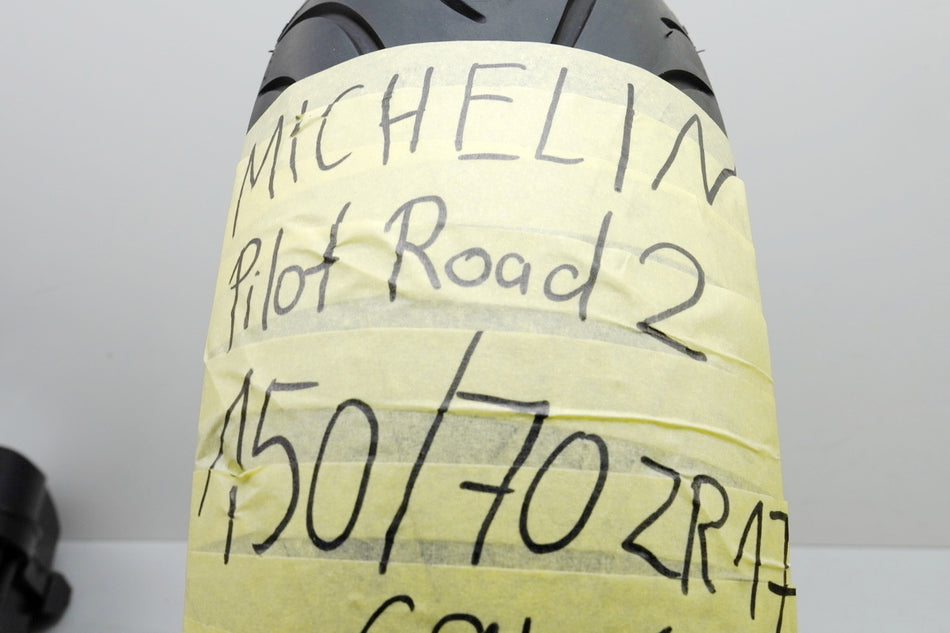 MiCHELIN
Pilot Road 2
150/70 ZR17